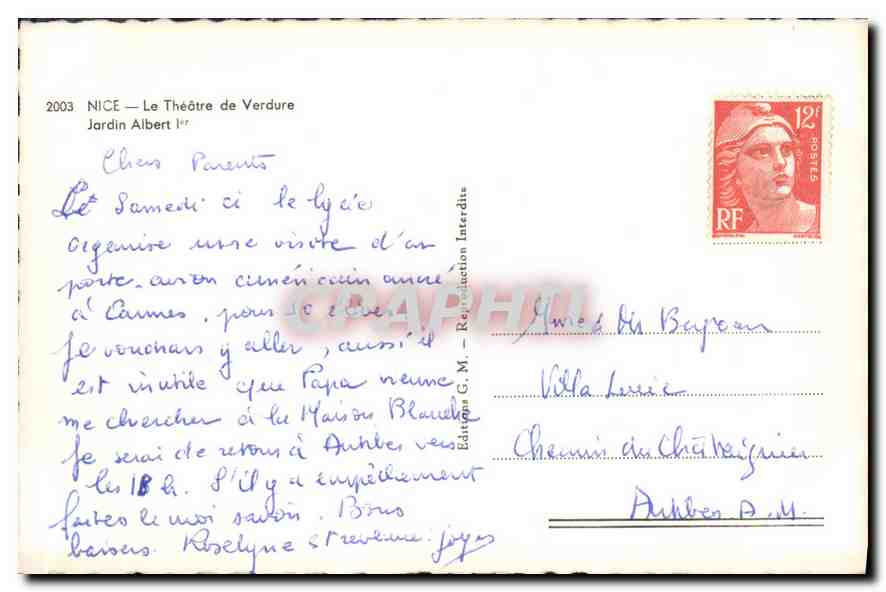 2003 NICE — Le Théâtre de Verdure
Jardin Albert Ier
Chers Parents
Le Samedi ci le lycée
organise une visite d'un
porte-avion américain ancré
à Cannes, pour 50 élèves
Je voudrais y aller, aussi il
est inutile que Papa vienne
me chercher à la Maison Blanche
Je serai de retour à Antibes vers
les 18 h. S'il y a empêchement
faites le moi savoir. Bons
baisers. Roselyne
Editions G. M. — Reproduction Interdite
12f
POSTES
RF
CPAPHIL
Villa Lucie
Chemin du Châtaignier
Antibes A.M.